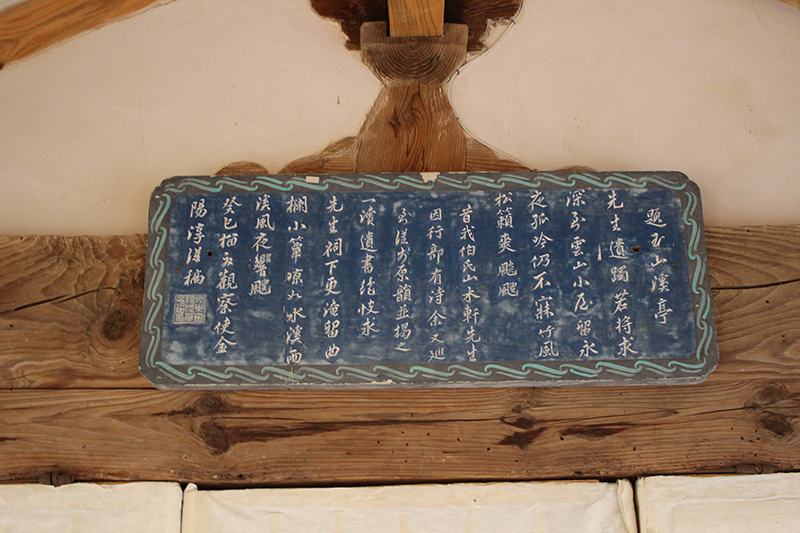 題玉山溪亭
先生遺躅若將求
深到雲山小屋留永
夜孤吟仍不寐竹風
松籟爽颼颼
昔我伯氏山木軒先生
因行部有詩余又巡
到謹步原韻並揭之
一瀆遺書後
永
先生祠下更淹留曲
欄小簟凉如水溪雨
溪風夜響颼
癸巳 觀察使金
陽淳謹稿